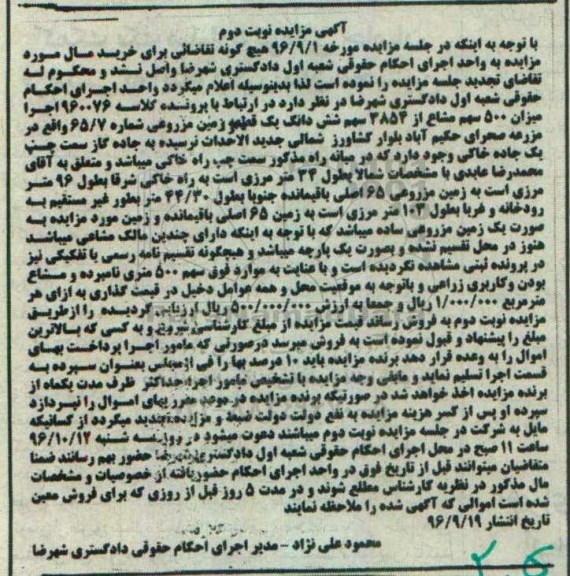 آگهی مزایده نوبت دوم
با توجه به اینکه در جلسه مزایده مورخه ۹۶/۹/۱ هیچ گونه تقاضائی برای خرید مال مورد
مزایده به واحد اجرای احکام حقوقی شعبه اول دادگستری شهرضا واصل نشد و محکوم له
تقاضای تجدید جلسه مزایده را نموده است لذا بدینوسیله اعلام میگردد واحد اجرای احکام
حقوقی شعبه اول دادگستری شهرضا در نظر دارد در ارتباط با پرونده کلاسه ۹۶۰۰۷۶ اجرا
میزان ۵۰۰ سهم مشاع از ۳۸۵۴ سهم شش دانگ یک قطعه زمین مزروعی شماره ۶۵/۷ واقع در
مزرعه صحرای حکیم آباد بلوار کشاورز شمالی جدید الاحداث نرسیده به جاده گاز سمت چپ
یک جاده خاکی وجود دارد که در میانه راه مذکور سمت چپ راه خاکی میباشد و متعلق به آقای
محمدرضا عابدی با مشخصات شمالا بطول ۳۴ متر مرزی است به راه خاکی شرقا بطول ۹۶ متر
مرزی است به زمین مزروعی ۶۵ اصلی باقیمانده جنوبا بطول ۴۴/۳۰ متر بطور غیر مستقیم به
رودخانه و غربا بطول ۱۰۳ متر مرزی است به زمین ۶۵ اصلی باقیمانده و زمین مورد مزایده به
صورت یک زمین مزروعی ساده میباشد که با توجه به اینکه دارای چندین مالک مشاعی میباشد
هنوز در محل تقسیم نشده و بصورت یک پارچه میباشد و هیچگونه تقسیم نامه رسمی یا تفکیکی نیز
در پرونده ثبتی مشاهده نگردیده است و با عنایت به موارد فوق سهم ۵۰۰ متری نامبرده و مشاع
بودن وکاربری زراعی و باتوجه به موقعیت محل و همه عوامل دخیل در قیمت گذاری به ازای هر
مترمربع ۱/۰۰۰/۰۰۰ ریال و جمعا به ارزش ۵۰۰/۰۰۰/۰۰۰ ریال ارزیابی گردیده را ازطریق
مزایده نوبت دوم به فروش رساند قیمت مزایده از مبلغ کارشناسی شروع و به کسی که بالاترین
مبلغ را پیشنهاد و قبول نموده است به فروش میرسد درصورتی که مامور اجرا پرداخت بهای
اموال را به وعده قرار دهد برنده مزایده باید ۱۰ درصد بها را فی المجلس بعنوان سپرده به
قسمت اجرا تسلیم نماید و مابقی وجه مزایده با تشخیص مامور اجرا حداکثر ظرف مدت یکماه از
برنده مزایده اخذ خواهد شد در صورتیکه برنده مزایده در موعد مقرر بهای اموال را نپردازد
سپرده او پس از کسر هزینه مزایده به نفع دولت دولت ضبط و مزایده تجدید میگردد از کسانیکه
مایل به شرکت در جلسه مزایده نوبت دوم میباشند دعوت میشود در روز سه شنبه ۹۶/۱۰/۱۲
ساعت ۱۱ صبح در محل اجرای احکام حقوقی شعبه اول دادگستری شهرضا حضور بهم رسانند ضمنا
متقاضیان میتوانند قبل از تاریخ فوق در واحد اجرای احکام حضور یافته از خصوصیات و مشخصات
مال مذکور در نظریه کارشناس مطلع شوند و در مدت ۵ روز قبل از روزی که برای فروش معین
شده است اموالی که آگهی شده را ملاحظه نمایند
تاریخ انتشار ۹۶/۹/۱۹
محمود علی نژاد - مدیر اجرای احکام حقوقی دادگستری شهرضا